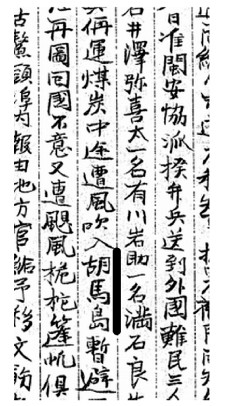 日准閩安協派撥弁兵送到外國難民三人
井澤弥喜太一名有川岩助一名滿石良
運煤炭中途遭風吹入胡馬島暫避
再圖回國不意又遭颶風桅柁篷帆俱
古鰲頭澳內報由地方官給予移文飭